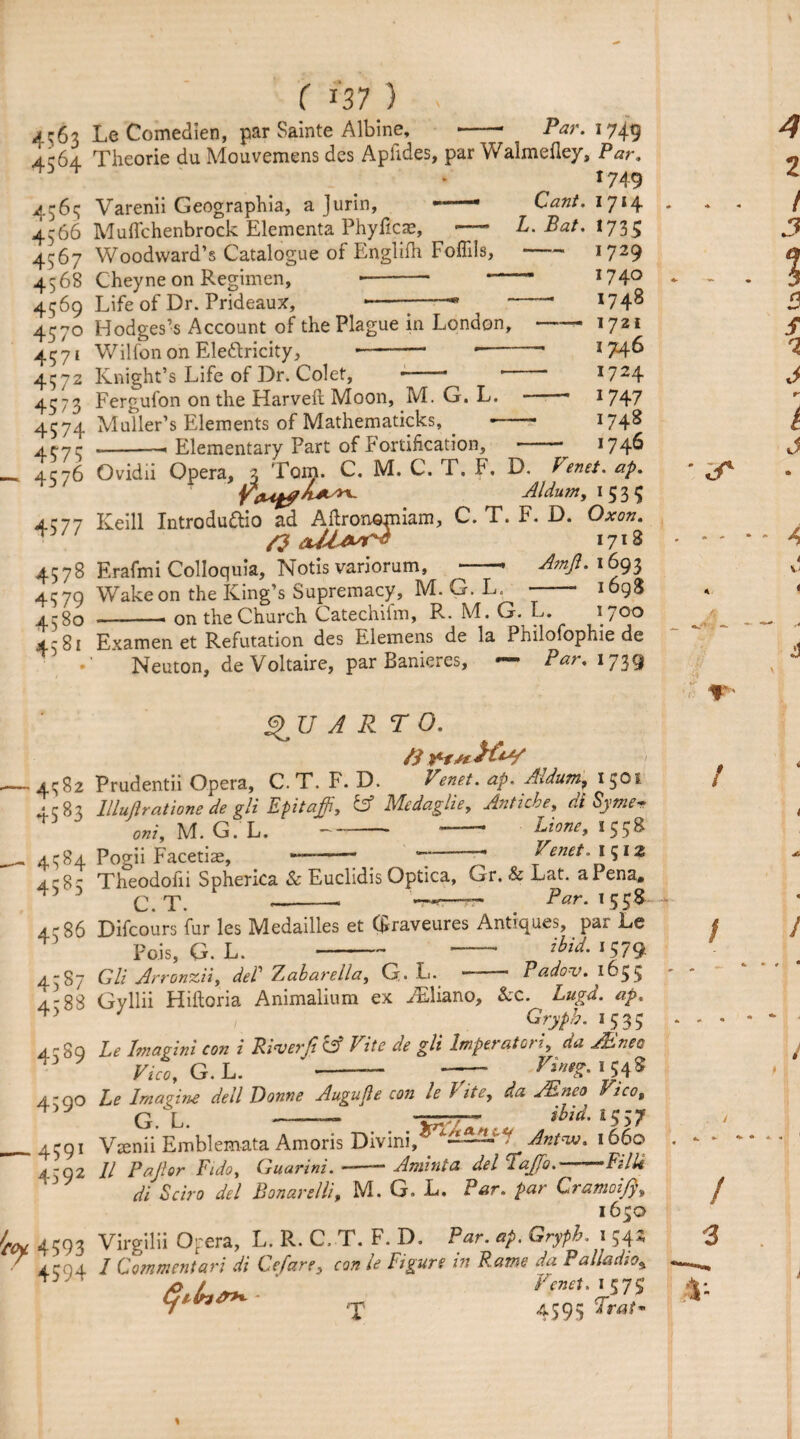 ( 137 )
4563 Le Comedien, par Sainte Albine, —— Par. 1749
4564 Theorie du Mouvemens des Apſides, par Walmeſley, Par.
1749
4565 Varenii Geographia, a Jurin, —— Cant. 1714
4566 Muſſchenbrock Elementa Phyſicæ, —— L. Bat. 1735
4567 Woodward's Catalogue of Engliſh Foſſils, —— 1729
4568 Cheyne on Regimen, —— —— 1740
4569 Life of Dr. Prideaux, —— —— 1748
4570 Hodges's Account of the Plague in London, —— 1721
4571 Wilſon on Electricity, —— —— 1746
4572 Knight's Life of Dr. Colet, —— —— 1724
4573 Ferguſon on the Harveſt Moon, M. G. L. —— 1747
4574 Muller's Elements of Mathematicks, —— 1748
4575 —— Elementary Part of Fortification, —— 1746
4576 Ovidii Opera, 3 Tom. C. M. C. T. F. D. Venet. ap.
Aldum, 1535
4577 Keill Introductio ad Aſtronomiam, C. T. F. D. Oxon.
1718
4578 Eraſmi Colloquia, Notis variorum, —— Amſt. 1693
4579 Wake on the King's Supremacy, M. G. L. —— 1698
4580 —— on the Church Catechiſm, R. M. G. L. 1700
4581 Examen et Refutation des Elemens de la Philoſophie de
Neuton, de Voltaire, par Banieres, — Par. 1739
QUARTO.
4582 Prudentii Opera, C. T. F. D. Venet. ap. Aldum, 1501
4583 Illuſtratione de gli Epitaffi, & Medaglie, Antiche, di Syme-
oni, M. G. L. —— —— Lione, 1558
4584 Pogii Facetiæ, —— —— Venet. 1512
4585 Theodoſii Spherica & Euclidis Optica, Gr. & Lat. a Pena,
C. T. —— —— Par. 1558
4586 Diſcours ſur les Medailles et Graveures Antiques, par Le
Pois, G. L. —— —— ibid. 1579
4587 Gli Arronzii, del' Zabarella, G. L. —— Padov. 1655
4588 Gyllii Hiſtoria Animalium ex Æliano, &c. Lugd. ap.
Gryph. 1535
4589 Le Imagini con i Riverſi & Vite de gli Imperatori, da Æneo
Vico, G. L. —— —— Vineg. 1548
4590 Le Imagine dell Donne Auguſte con le Vite, da Æneo Vico,
G. L. —— —— ibid. 1557
4591 Vænii Emblemata Amoris Divini, Antw. 1660
4592 Il Paſtor Fido, Guarini. —— Aminta del Taſſo. —— Filli
di Sciro del Bonarelli, M. G. L. Par. par Cramoiſy,
1650
4593 Virgilii Opera, L. R. C. T. F. D. Par. ap. Gryph. 1542
4594 I Commentari di Ceſare, con le Figure in Rame da Palladio,
Venet. 1575
T 4595 Trat-